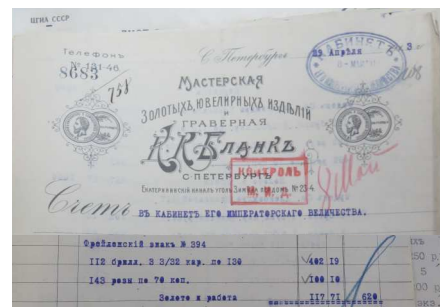 ЦГИА СССР
Телефонъ
№ 131-46.
8683
758
С.Петербургъ
29 Апрѣля
3
КАБИНЕТЪ
МАСТЕРСКАЯ
ЗОЛОТЫХЪ, ЮВЕЛИРНЫХЪ ИЗДѢЛІЙ
И
ГРАВЕРНАЯ
К.К.Бланкъ
С-ПЕТЕРБУРГЪ
ЕКАТЕРИНИНСКІЙ КАНАЛЪ УГОЛЪ ДОМЪ № 23-4.
КОНТРОЛЬ
М. И. Д.
Счетъ
ВЪ КАБИНЕТЪ ЕГО ИМПЕРАТОРСКАГО ВЕЛИЧЕСТВА.
Фрейлинскій знакъ № 394
112 брилл. 3 3/32 кар. по 130 402 19
143 розы по 70 коп. 100 10
Золото и работа 117 71 620